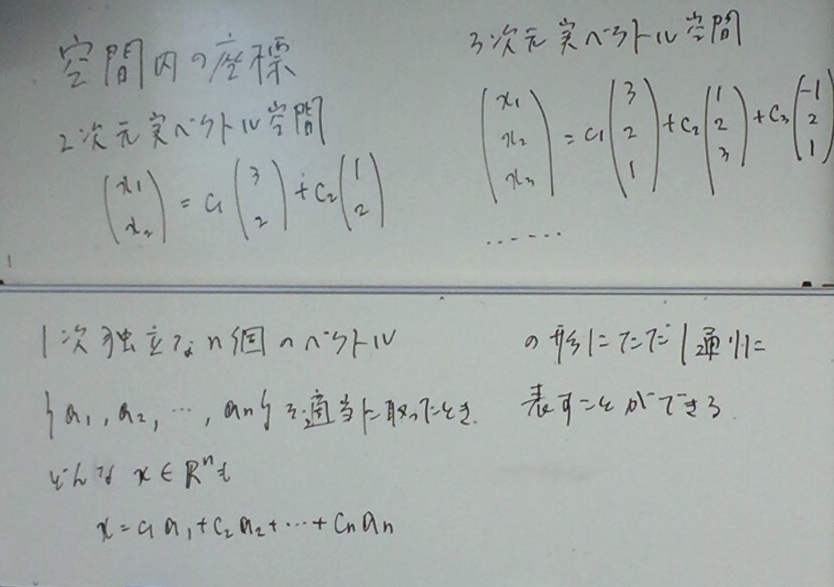 空間内の座標
2次元実ベクトル空間
(x₁ x₂) = c₁(3 2) + c₂(1 2)
3次元実ベクトル空間
(x₁ x₂ x₃) = c₁(3 2 1) + c₂(1 2 3) + c₃(-1 2 1)
……
1次独立なn個のベクトル
{a₁, a₂, …, aₙ}を適当に取ったとき.
どんな x ∈ Rⁿも
x = c₁a₁ + c₂a₂ + … + cₙaₙ
の形にただ1通りに
表すことができる